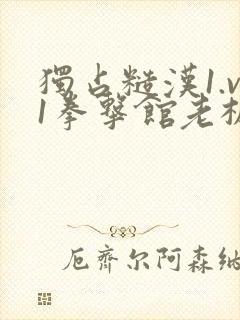 獨占糙漢1.v
1拳擊館老板
厄齊尔阿森纳